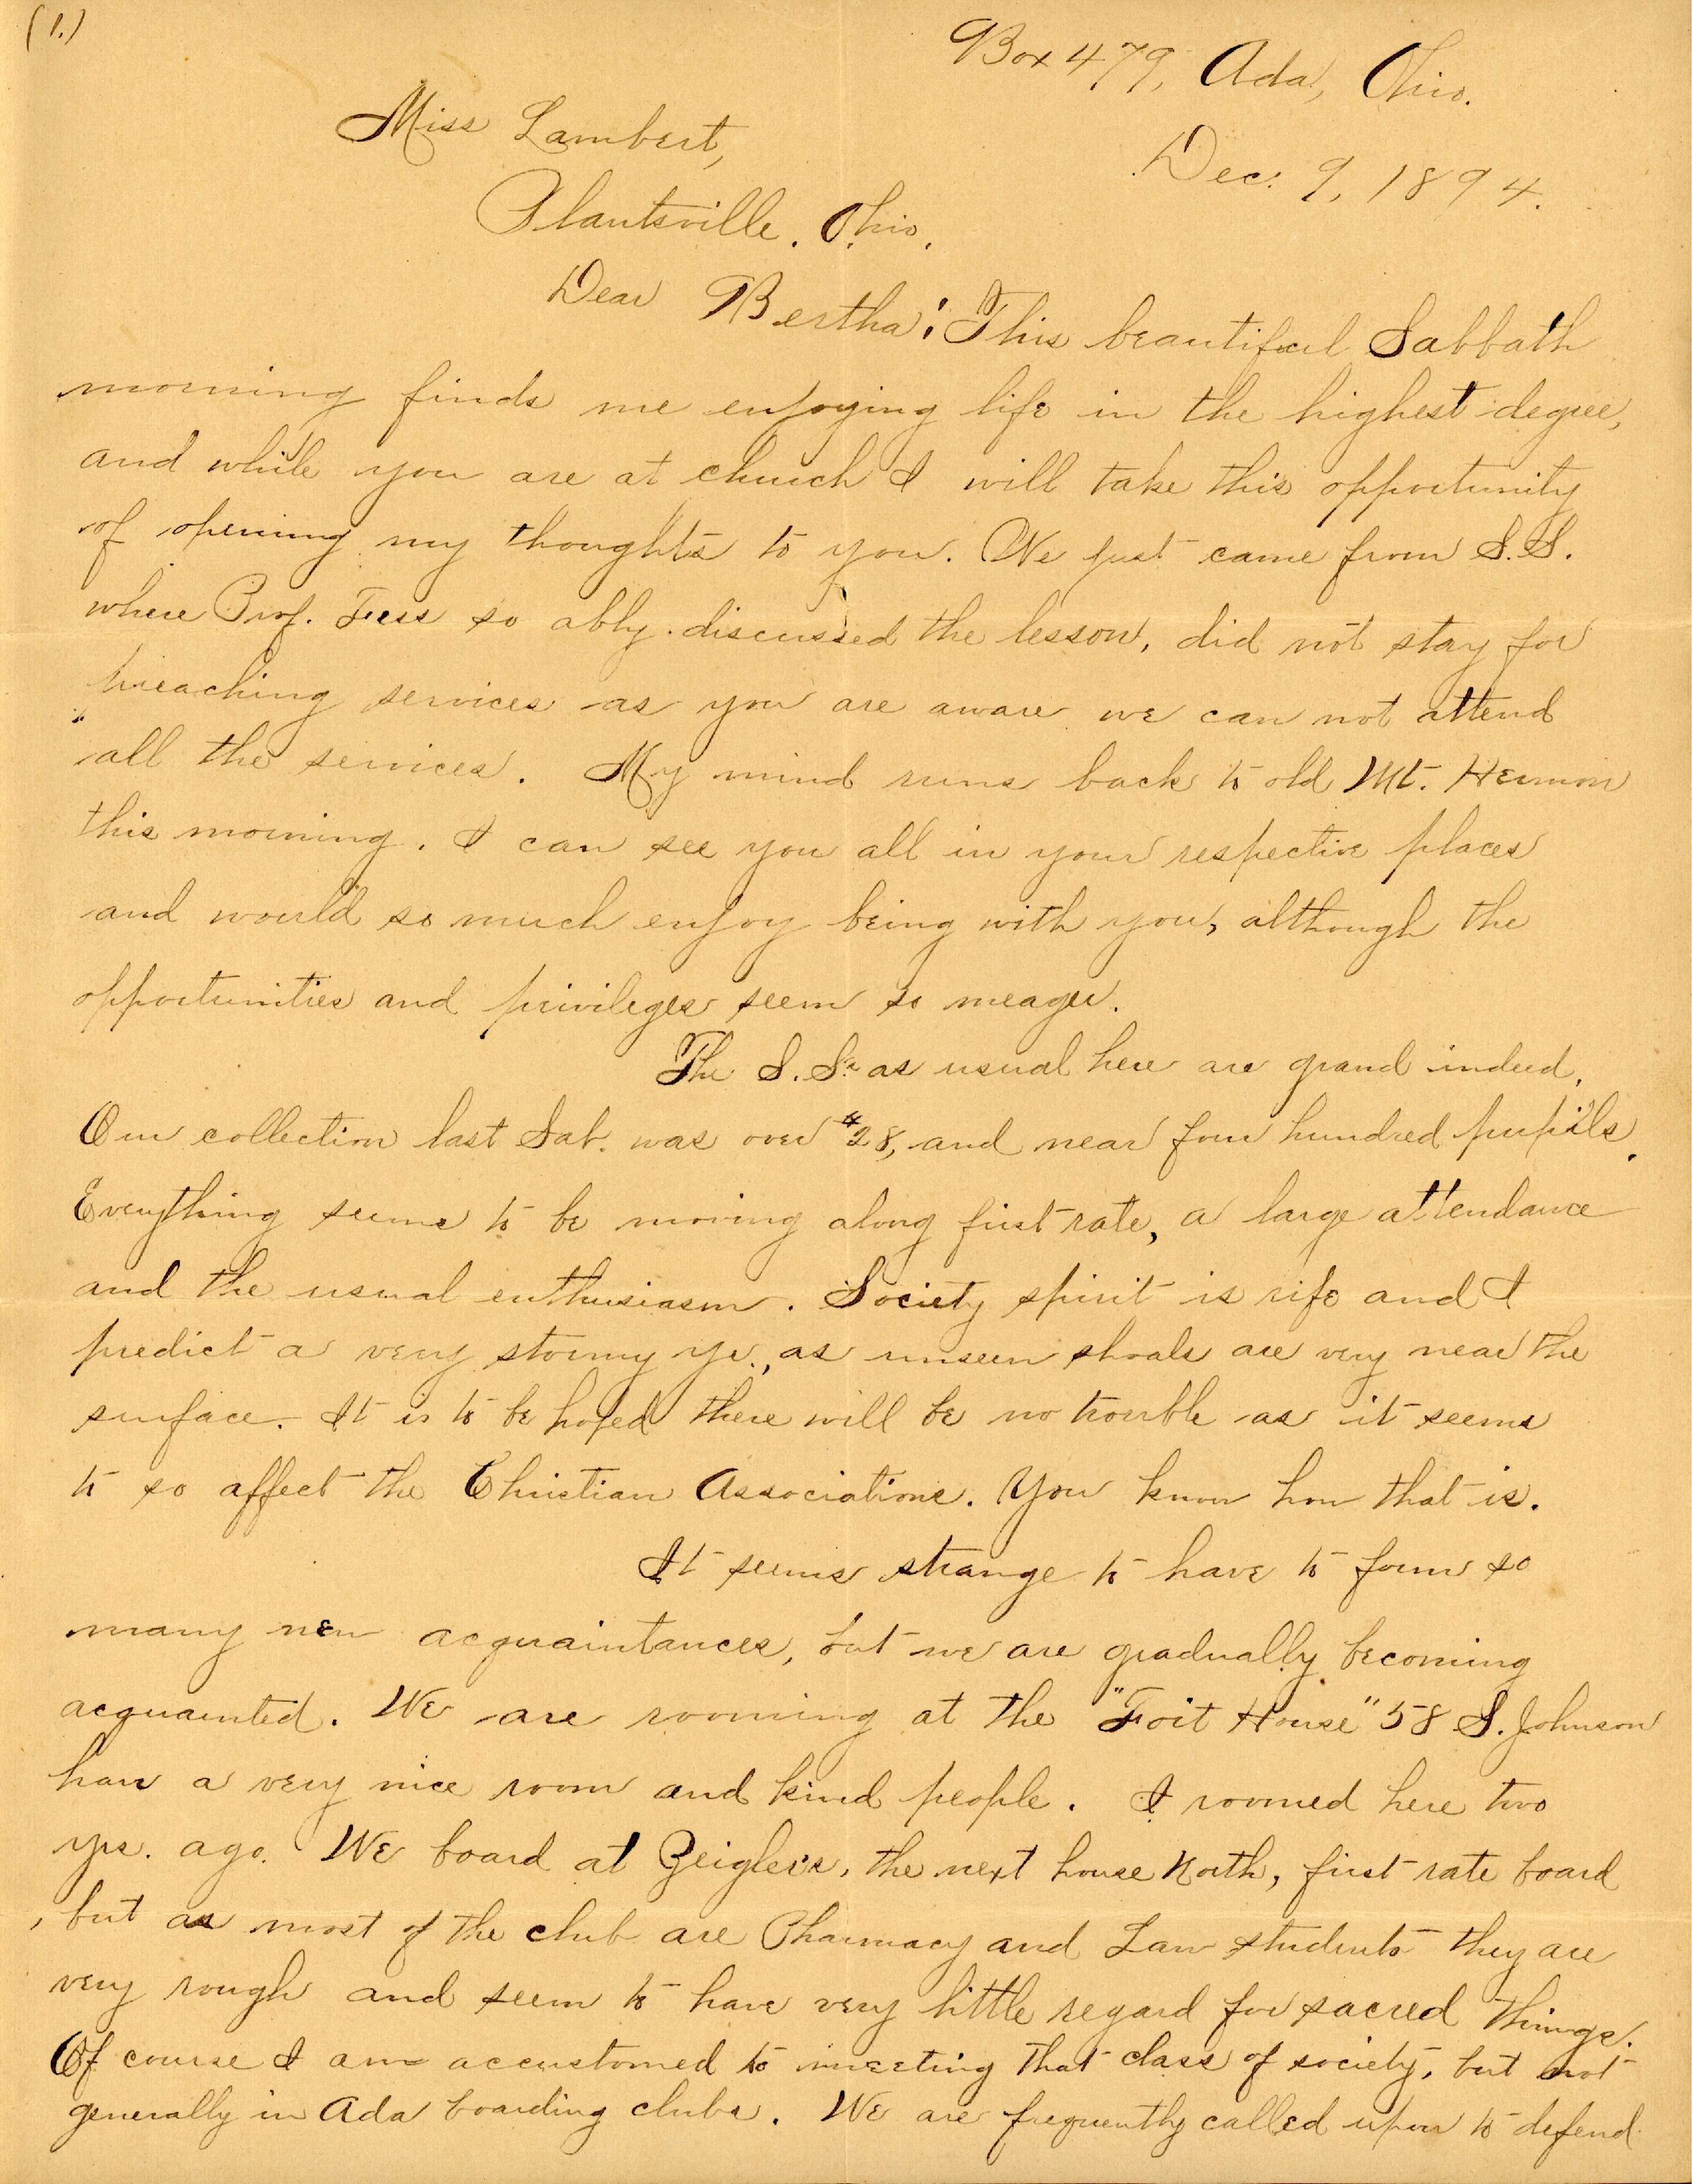 (1.)
Box 479, Ada, Ohio.
Miss Lambert,
Dec. 9, 1894.
Plantsville. Ohio.
Dear Bertha: This beautiful Sabbath
morning finds me enjoying life in the highest degree,
and while you are at church I will take this opportunity
of opening my thoughts to you. We just came from S.S.
where Prof. Fess so ably discussed the lesson, did not stay for
preaching services as you are aware we can not attend
all the services. My mind runs back to old Mt. Hermon
this morning. I can see you all in your respective places
and would so much enjoy being with you, although the
opportunities and privileges seem so meager.
The S. S. as usual here are grand indeed.
Our collection last Sab. was over $28, and near four hundred pupils.
Everything seems to be moving along first rate, a large attendance
and the usual enthusiasm. Society spirit is rife and I
predict a very stormy yr., as unseen shoals are very near the
surface. It is to be hoped there will be no trouble as it seems
to so affect the Christian Associations. You know how that is.
It seems strange to have to form so
many new acquaintances, but we are gradually becoming
acquainted. We are rooming at the "Foit House" 58 S. Johnson
have a very nice room and kind people. I roomed here two
yrs. ago. We board at Zeigler's, the next house North, first rate board
, but as most of the club are Pharmacy and Law students they are
very rough and seem to have very little regard for sacred things.
Of course I am accustomed to meeting that class of society, but not
generally in Ada boarding clubs. We are frequently called upon to defend